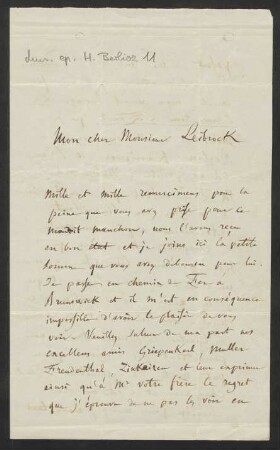 H. Berlioz 11
Mon cher Monsieur Leibrock
Mille et mille remerciments pour la
peine que vous avez prise pour ce
maudit manchon, nous l'avons reçu
en bon état et je joins ici la petite
somme que vous avez déboursée pour lui.
Je passe en chemin de Fer à
Brunswick et il m'est en conséquence
impossible d'avoir le plaisir de vous
voir. Veuillez saluer de ma part nos
excellents amis Griepenkerl, Muller
Freudenthal, Zinkeisen et leur exprimer
ainsi qu'à Mr votre frère le regret
que j'éprouve de ne pas les voir en